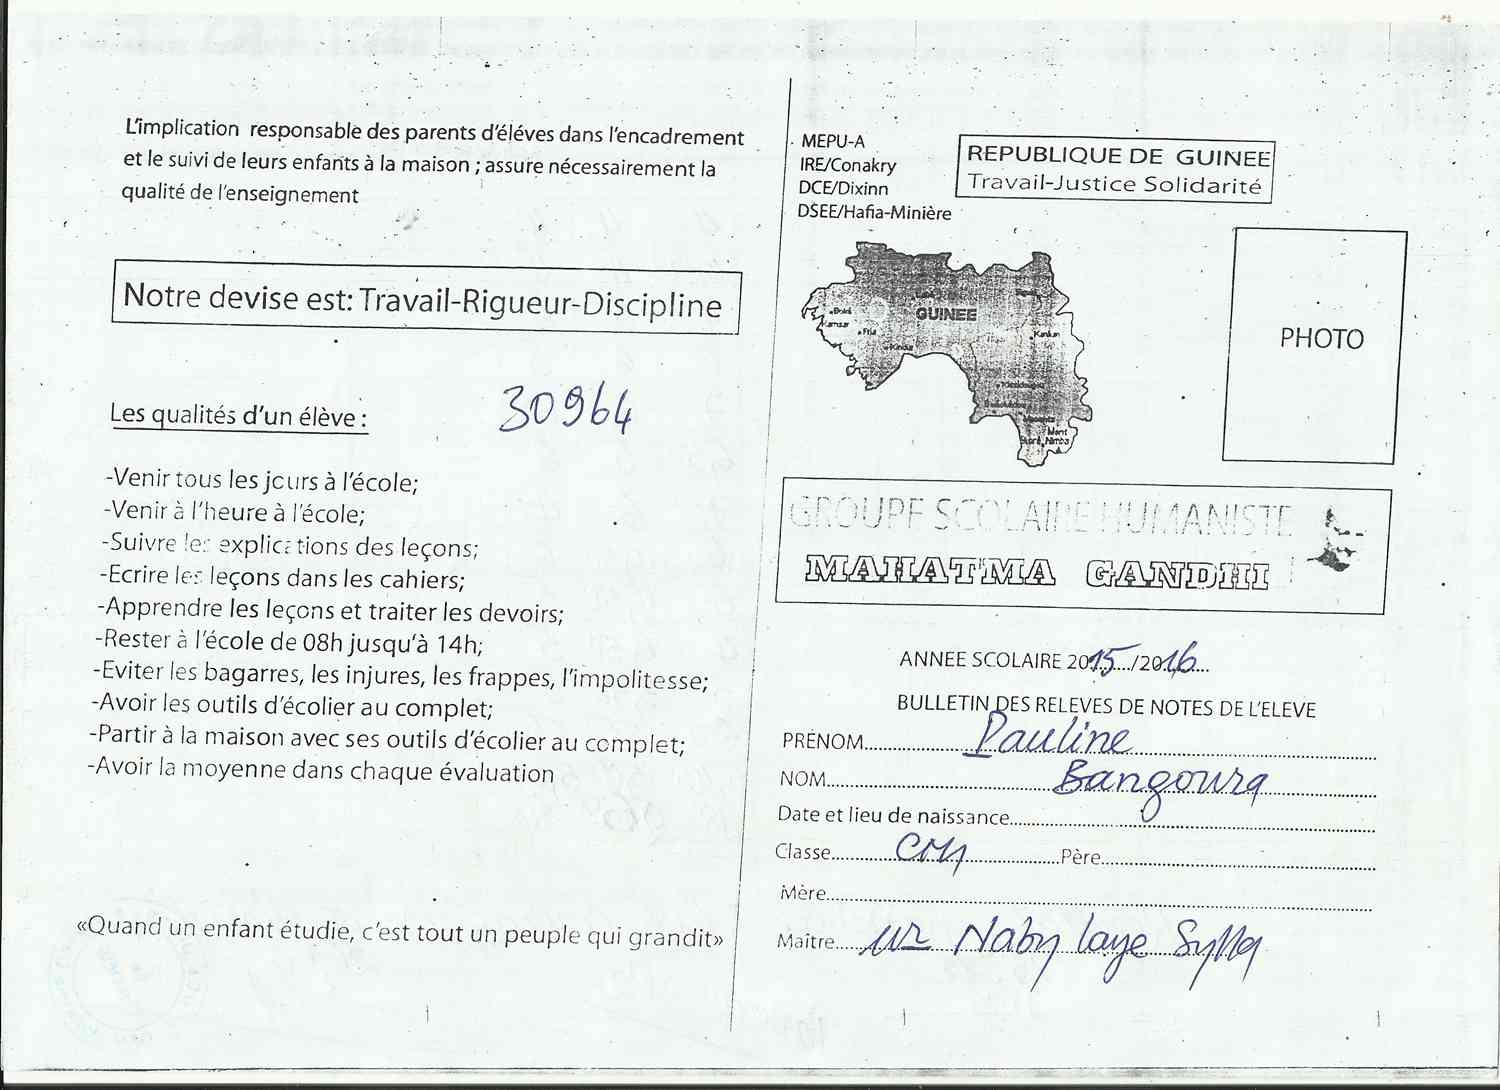 L'implication responsable des parents d'éléves dans l'encadrement
et le suivi de leurs enfants à la maison ; assure nécessairement la
qualité de l'enseignement
Notre devise est: Travail-Rigueur-Discipline
30964
Les qualités d'un élève :
-Venir tous les jours à l'école;
-Venir à l'heure à l'école;
-Suivre les explications des leçons;
-Ecrire les leçons dans les cahiers;
-Apprendre les leçons et traiter les devoirs;
-Rester à l'école de 08h jusqu'à 14h;
-Eviter les bagarres, les injures, les frappes, l'impolitesse;
-Avoir les outils d'écolier au complet;
-Partir à la maison avec ses outils d'écolier au complet;
-Avoir la moyenne dans chaque évaluation
«Quand un enfant étudie, c'est tout un peuple qui grandit»
MEPU-A
IRE/Conakry
DCE/Dixinn
DSEE/Hafia-Minière
REPUBLIQUE DE GUINEE
Travail-Justice Solidarité
GUINEE
Fria
Kindia
Kankan
Mont
Nimba
PHOTO
GROUPE SCOLAIRE HUMANISTE
MAHATMA GANDHI
ANNEE SCOLAIRE 2015/2016
BULLETIN DES RELEVES DE NOTES DE L'ELEVE
PRÉNOM Pauline
NOM Bangoura
Date et lieu de naissance
Classe Père
Mère
Maître Mr Naby Laye Sylla